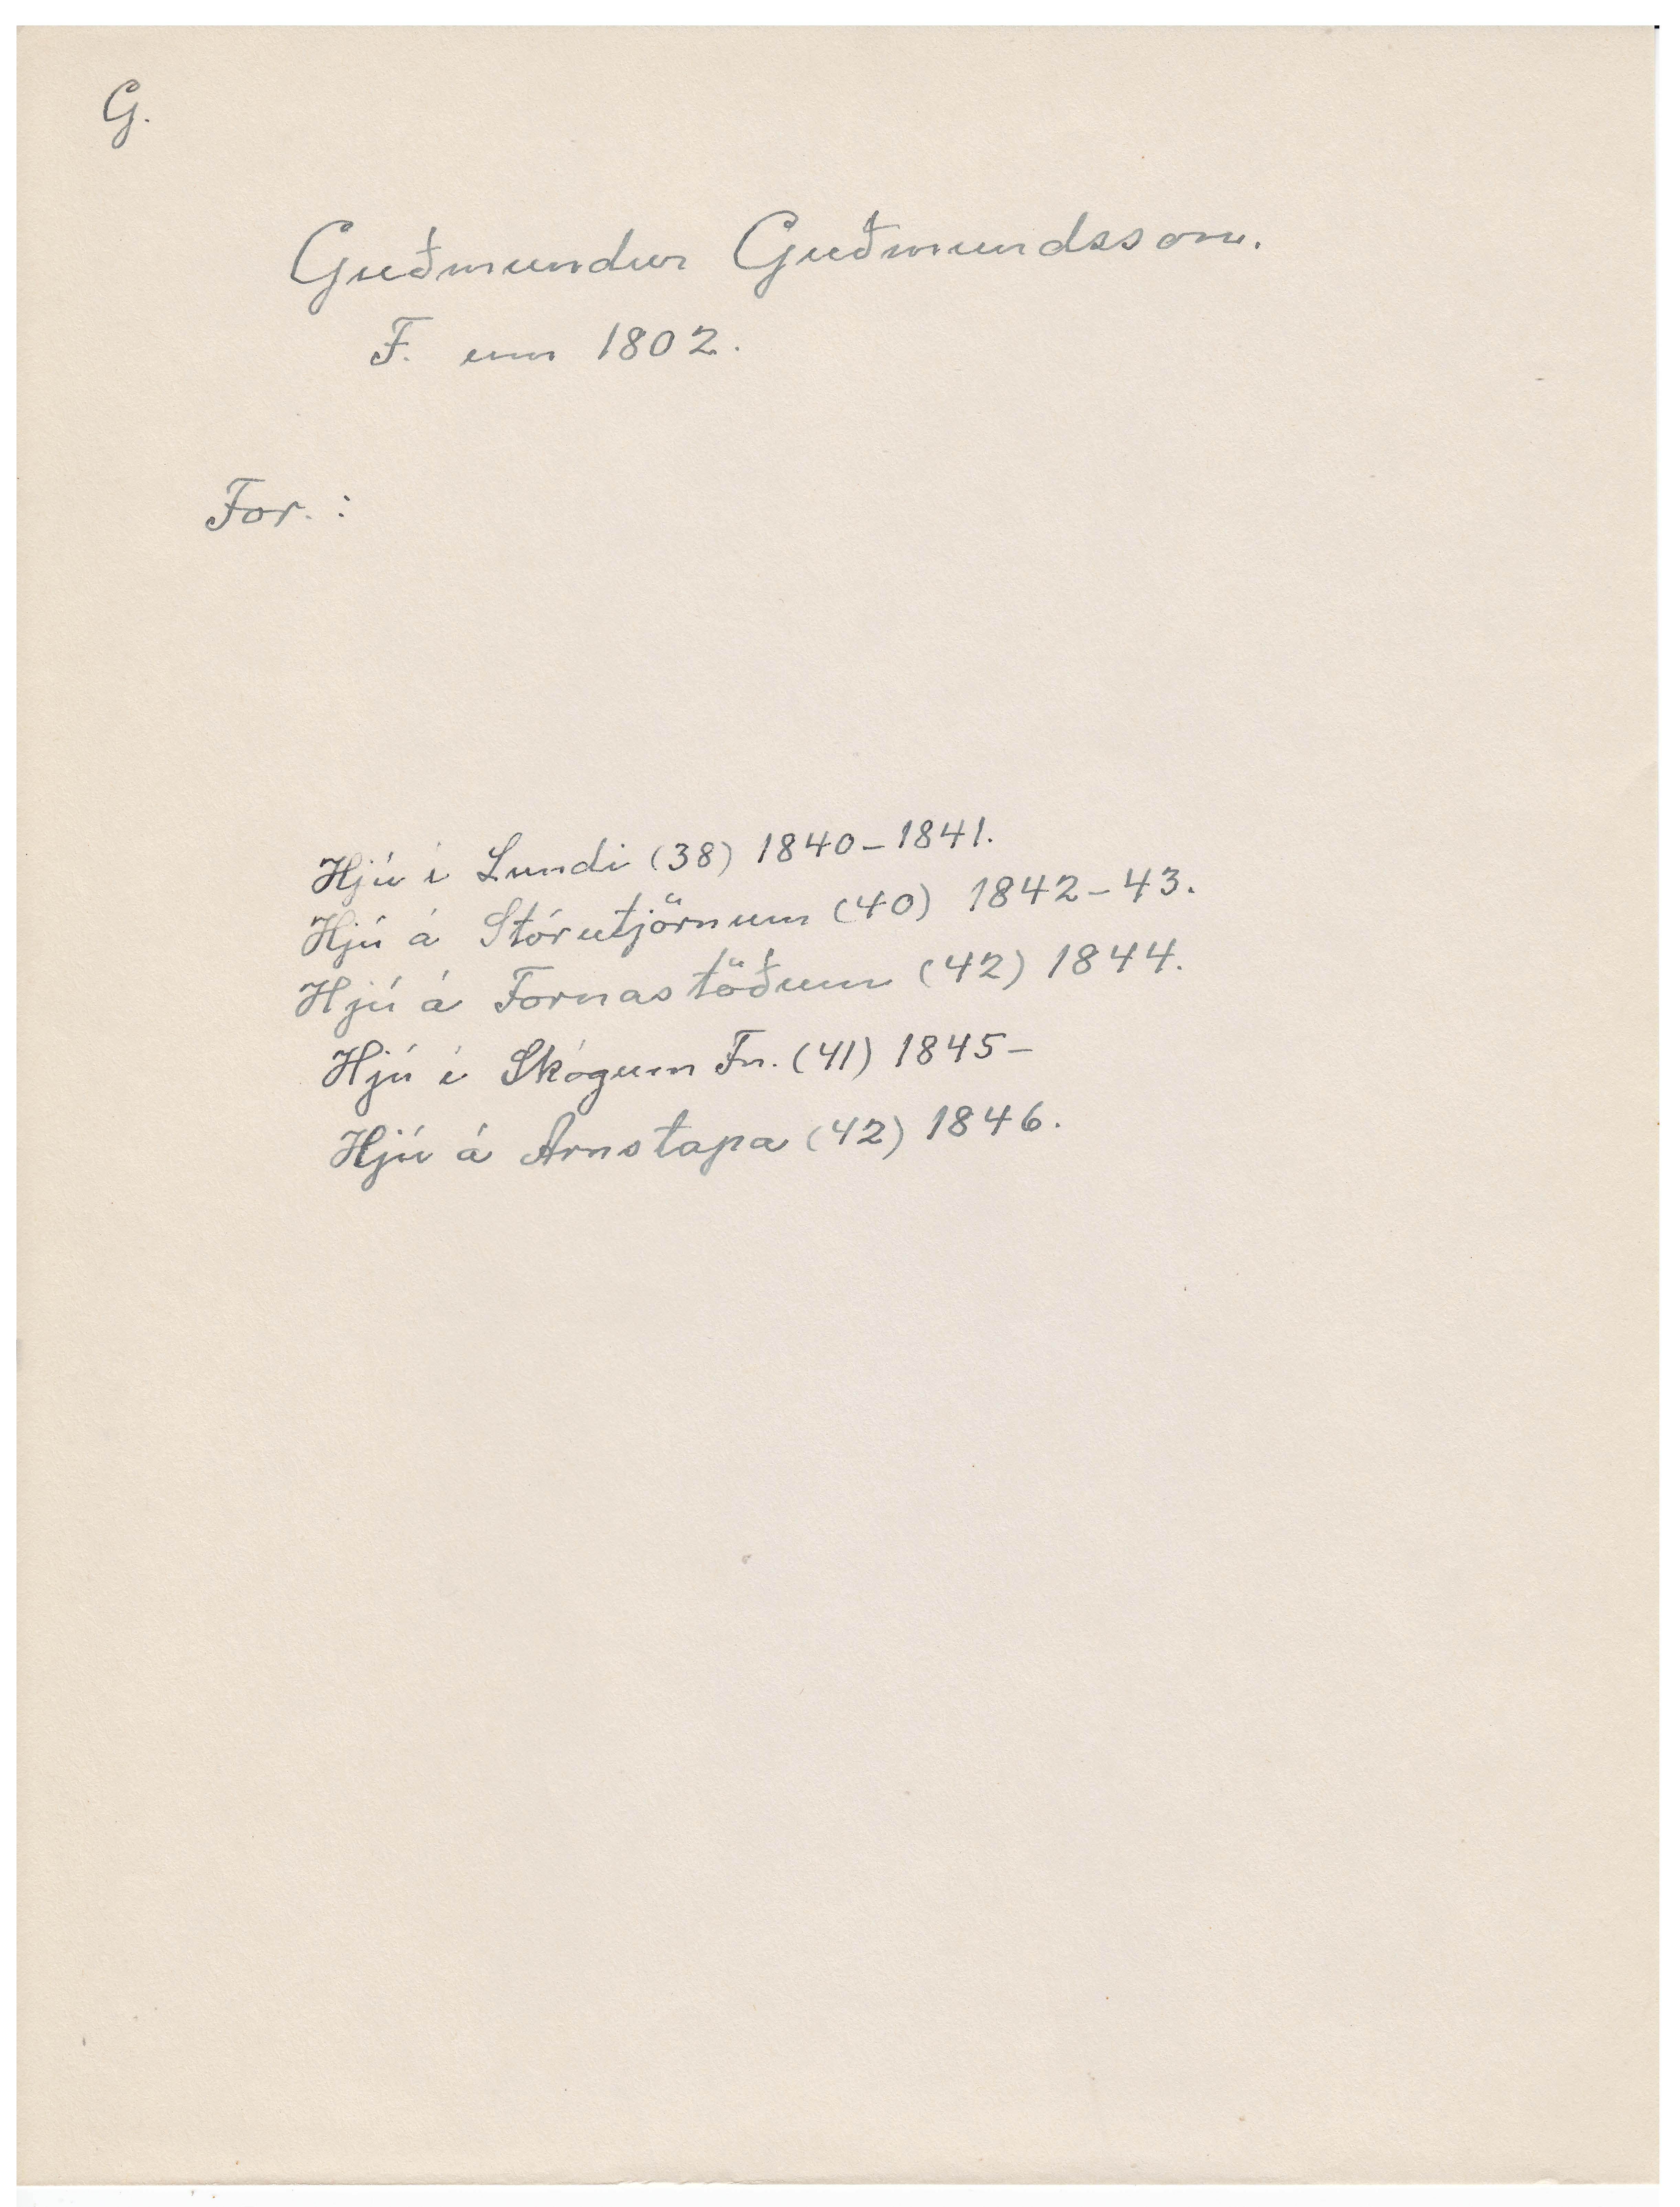 G.
Guðmundur Guðmundsson.
F. um 1802.
For. :
Hjú í Lundi (38) 1840-1841.
Hjú á Stórutjörnum (40) 1842-43.
Hjú á Fornastöðum (42) 1844.
Hjú í Skógum Fn. (41) 1845-
Hjú á Arnstapa (42) 1846.